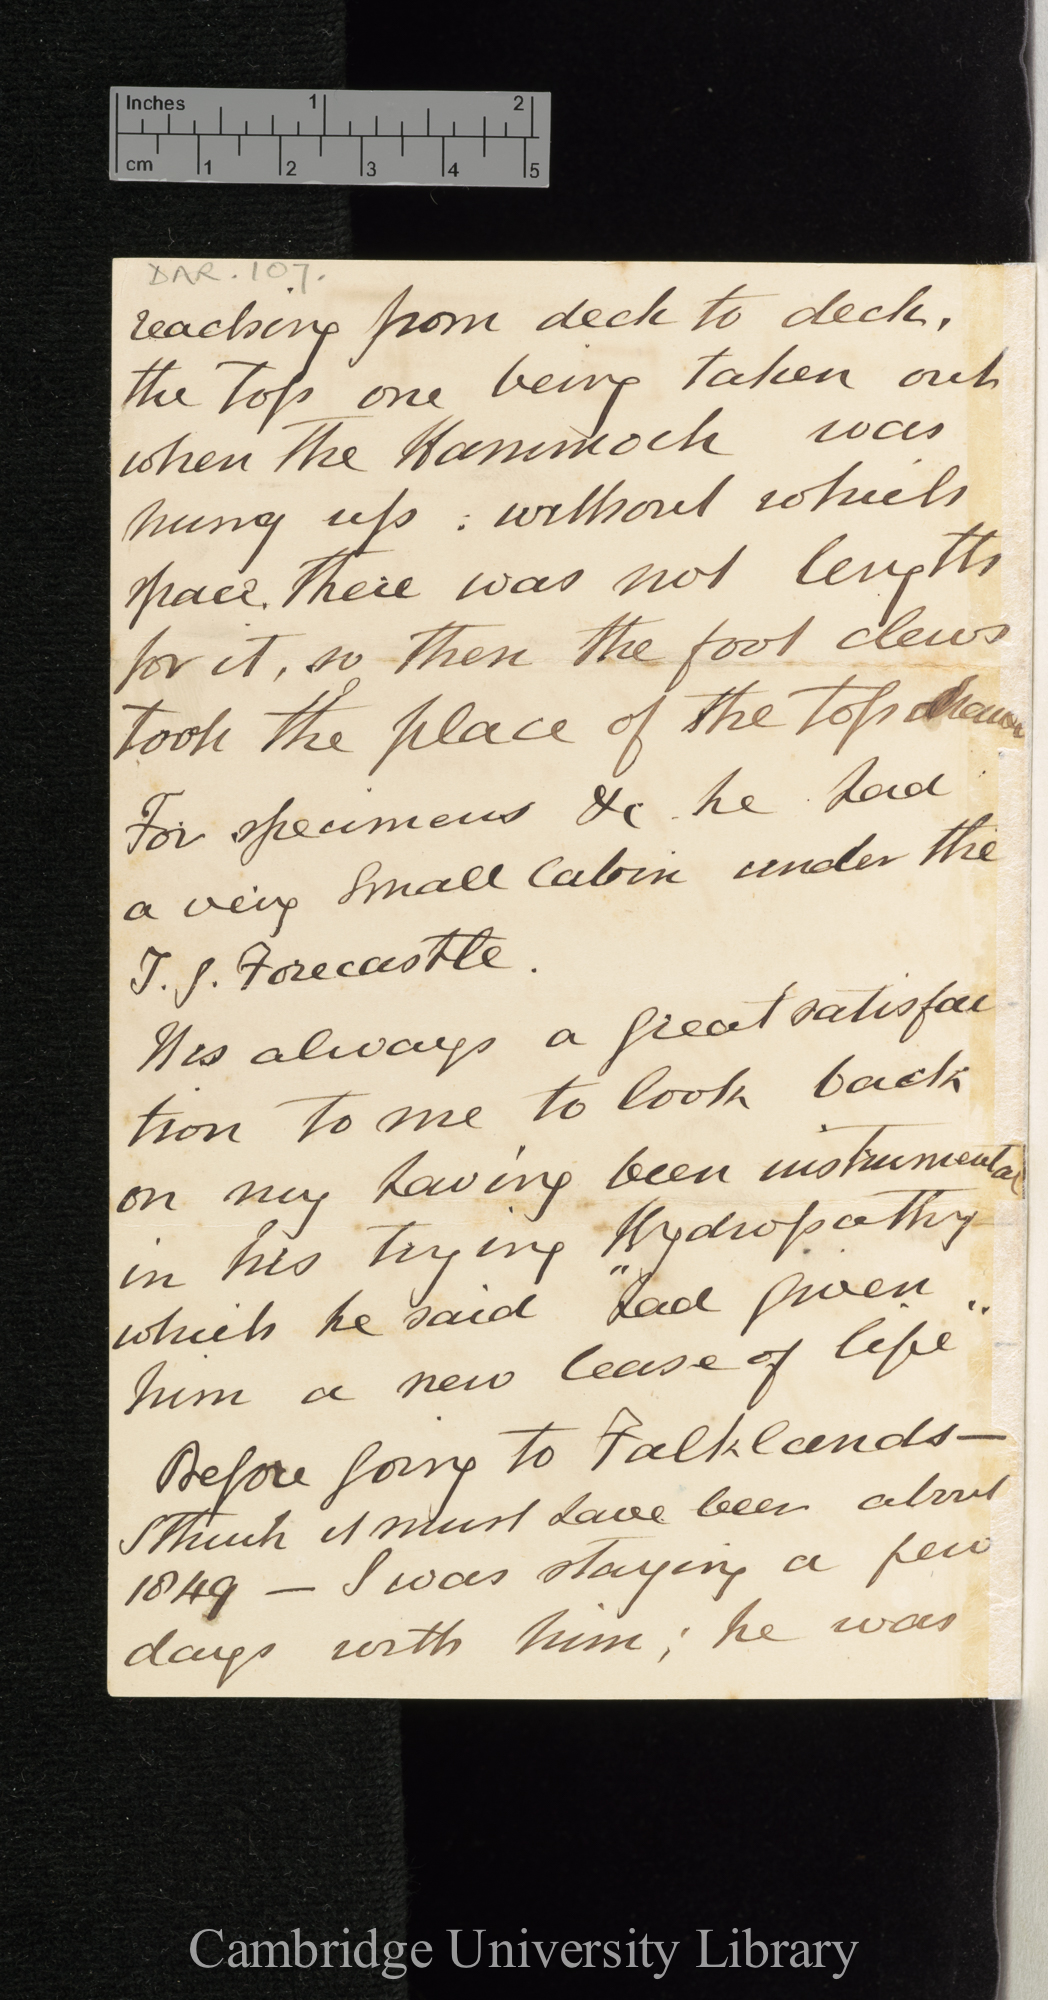 Inches 1 2
cm 1 2 3 4 5
DAR. 107.
reaching from deck to deck,
the top one being taken out
when the Hammock was
hung up : without which
space, there was not length
for it, so then the foot clews
took the place of the top drawer
For specimens &c he had
a very small Cabin under the
T. G. Forecastle.
It is always a great satisfac
tion to me to look back
on my having been instrumental
in his trying Hydropathy
which he said "had given
him a new lease of life"
Before going to Falklands—
I think it must have been about
1849 — I was staying a few
days with him; he was
Cambridge University Library